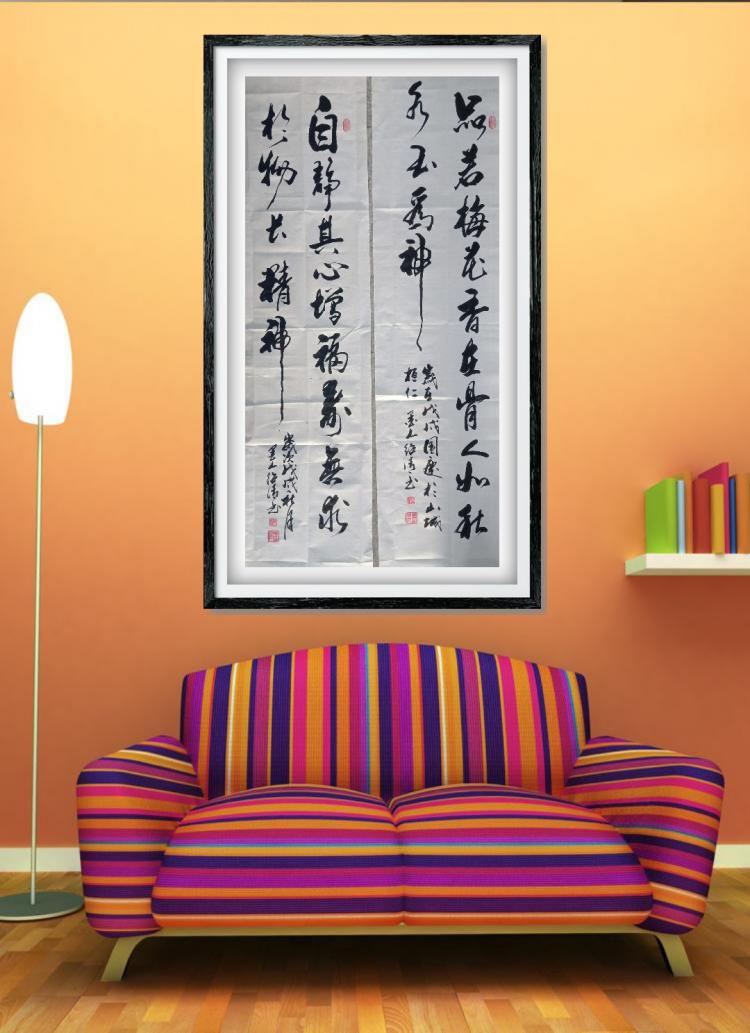 品若梅花香在骨人如秋
水玉為神
歲在戊戌國慶於山城
桓仁 墨人
自靜其心增福壽無求
於物長精神
歲次戊戌秋月
墨人